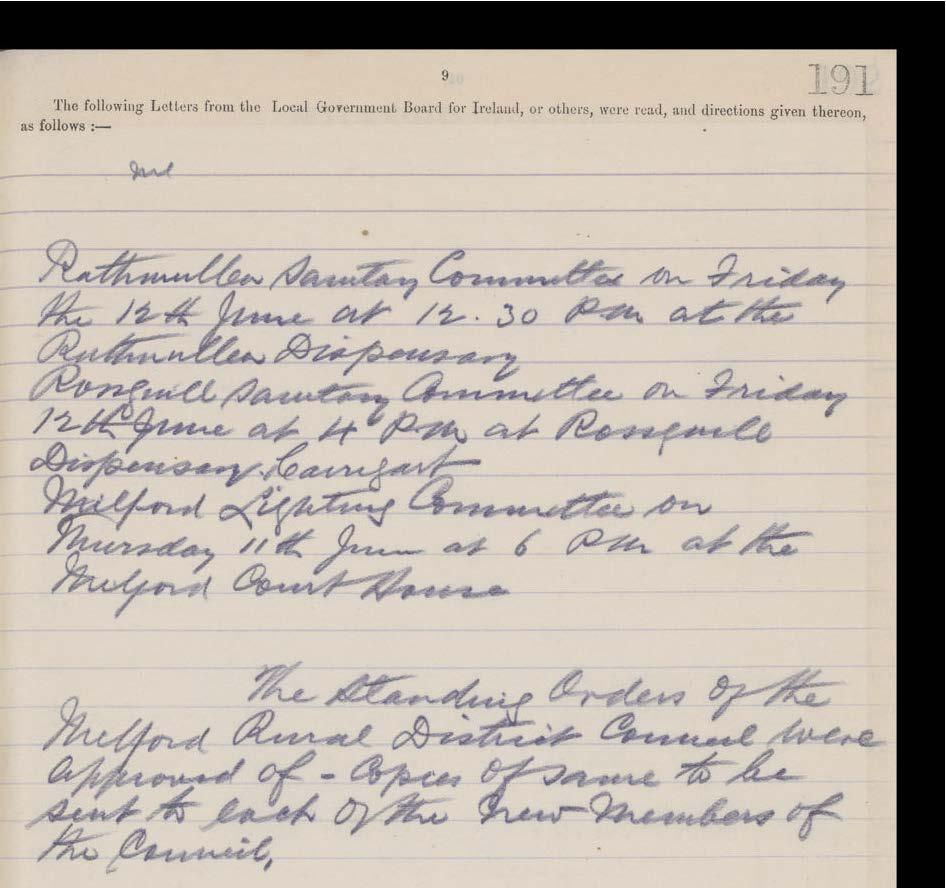 9
191
The following Letters from the Local Government Board for Ireland, or others, were read, and directions given thereon,
as follows :—
Rathmullen Sanitary Committee on Friday
the 12th June at 12.30 P.M at the
Rathmullen Dispensary
Rosguill Sanitary Committee on Friday
12th June at 4 P.M at Rossguill
Dispensary. Carrigart
Milford Lighting Committee on
Thursday 11th June at 6 P.M at the
Milford Court House
The Standing Orders of the
Milford Rural District Council were
approved of - Copies of same to be
sent to each of the new Members of
the Council,